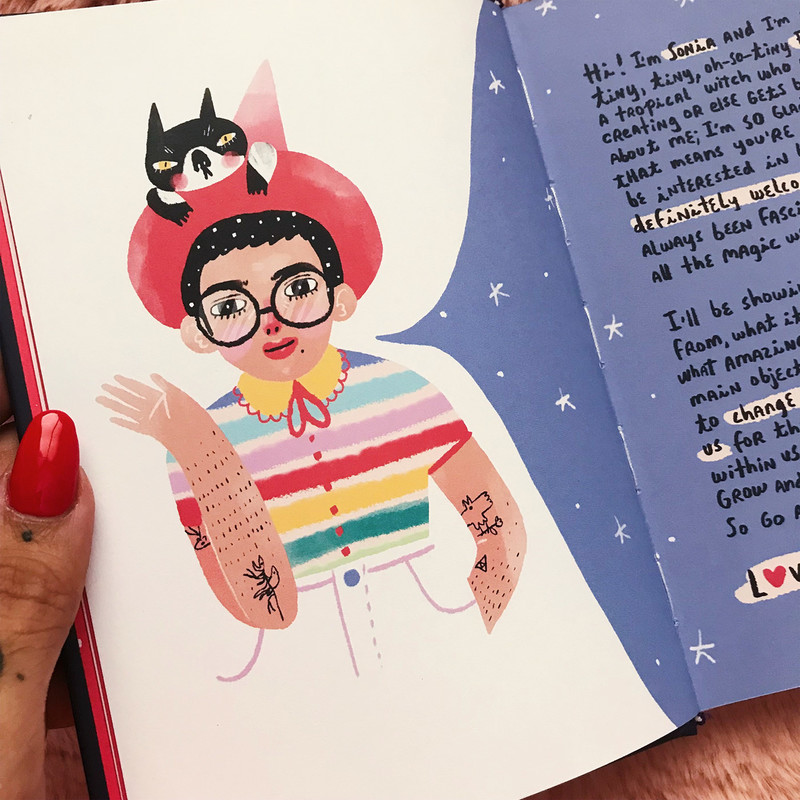 Hi! I'm SONIA AND I'm
tiny, tiny, oh-so-tiny
A tropical witch who
creating or else gets
About me; I'm SO GLA
that means you're
be interested in
definitely welco
Always been fasci
All the magic w
I'll be showin
from, what it
what amazin
main object
to change
us for th
within us
Grow and
So go A
LOV